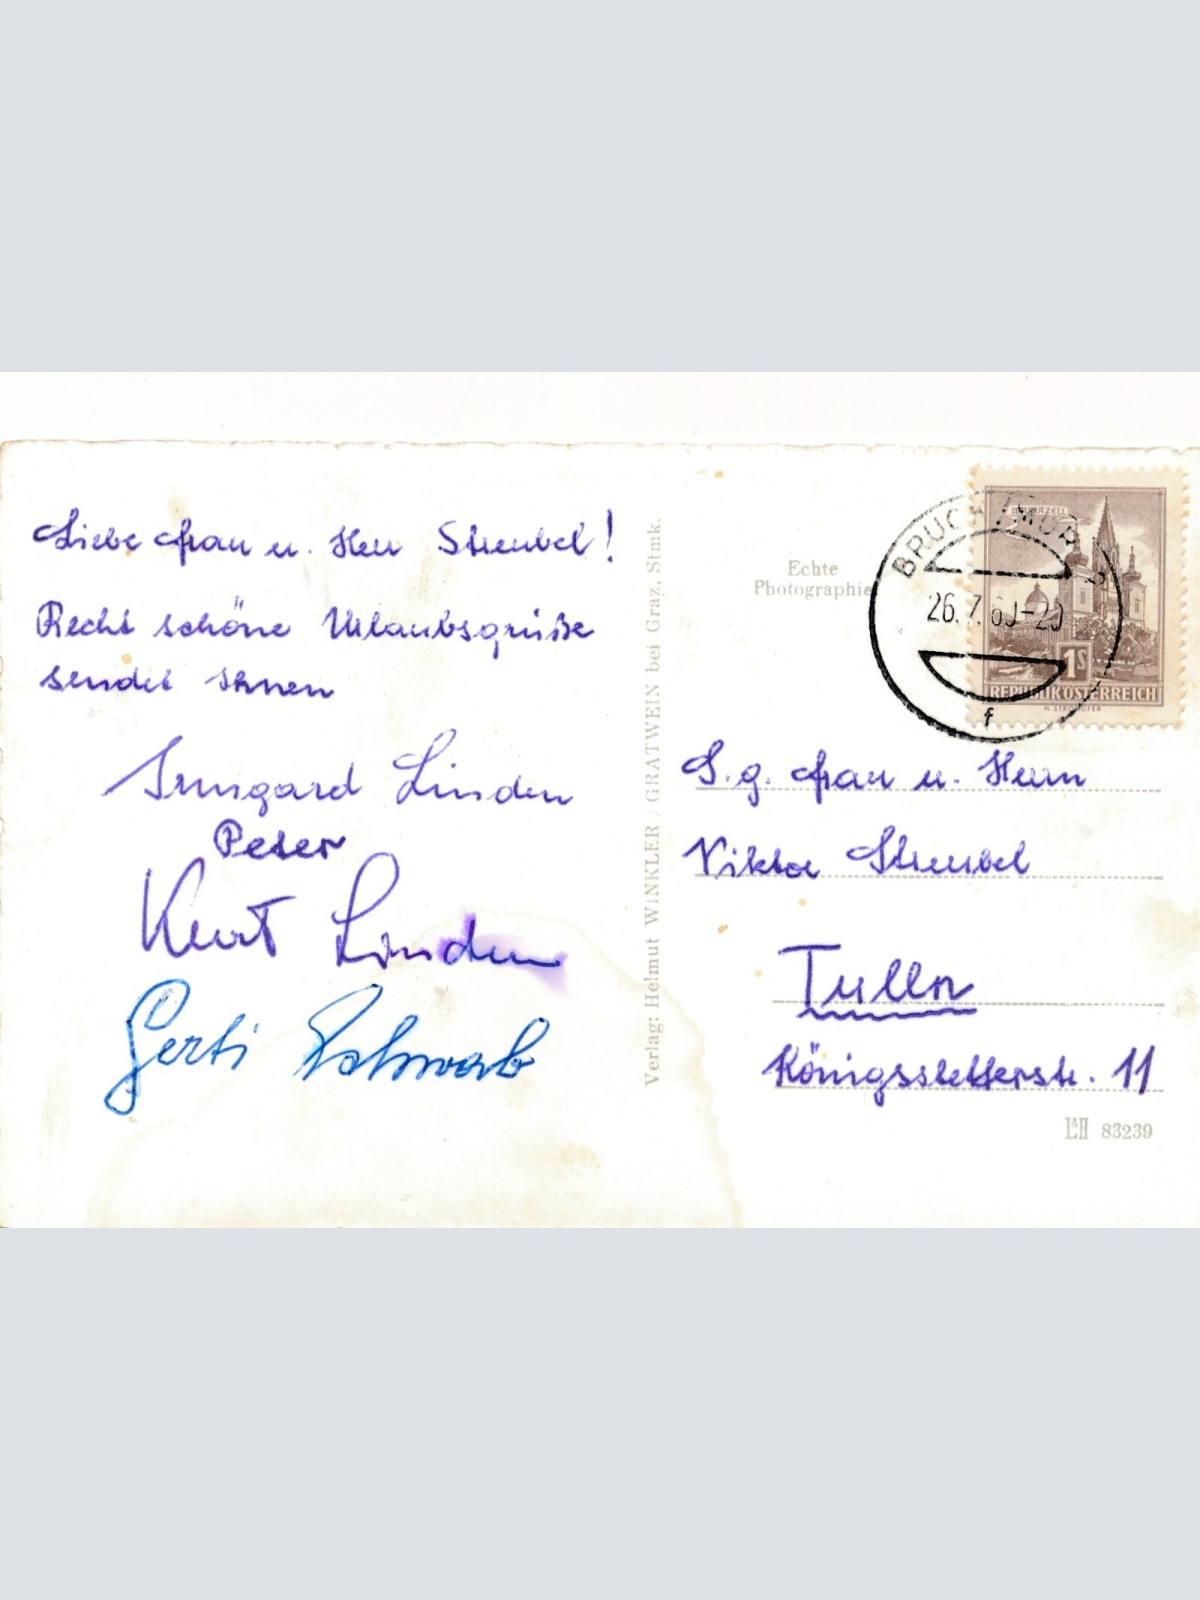 Liebe Frau u. Herr Streubel!
Recht schöne Urlaubsgrüße
sendet Ihnen
Irmgard Linden
Peter
Kurt Linden
Gerti Schwab
Verlag: Helmut WINKLER / GRATWEIN bei Graz, Stmk.
Echte
Photographie
BRUCK MUR
26.7.60-20
f
MARIAZELL
1S
REPUBLIK ÖSTERREICH
H. STROHOFER
S. g. Frau u. Herrn
Viktor Streubel
Tulln
Königsstetterstr. 11
83239